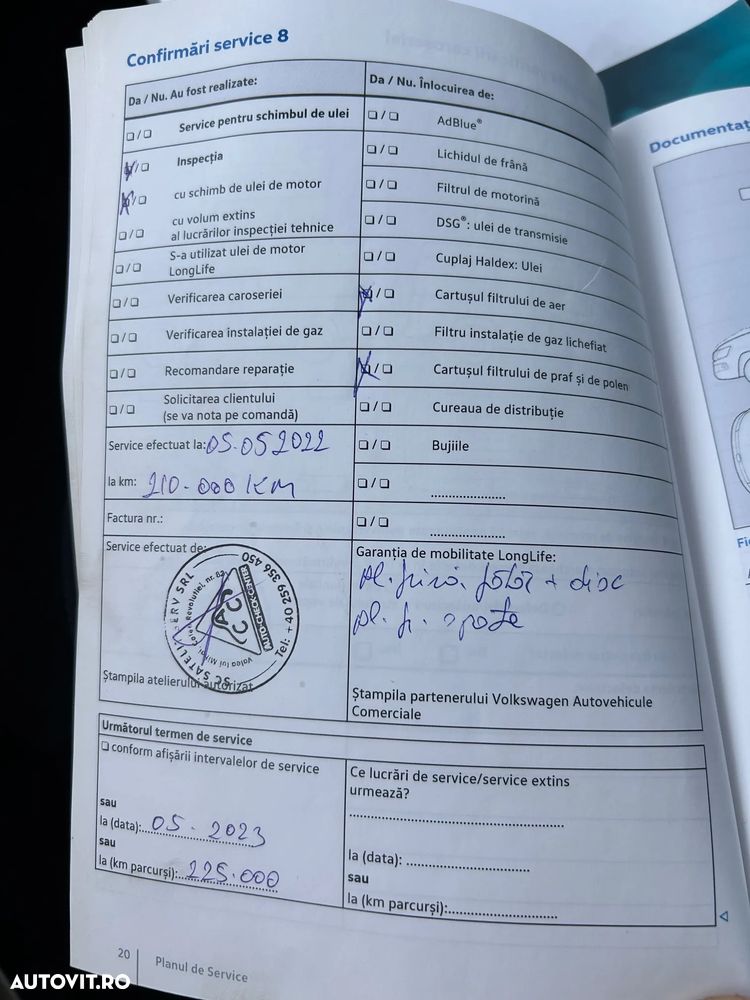 Confirmări service 8
Da / Nu. Au fost realizate:
❑/❑ Service pentru schimbul de ulei
❑/❑ Inspecția
❑/❑ cu schimb de ulei de motor
❑/❑ cu volum extins
al lucrărilor inspecției tehnice
❑/❑ S-a utilizat ulei de motor
LongLife
❑/❑ Verificarea caroseriei
❑/❑ Verificarea instalației de gaz
❑/❑ Recomandare reparație
❑/❑ Solicitarea clientului
(se va nota pe comandă)
Service efectuat la: 05.05 2022
la km: 210.000 KM
Factura nr.:
Service efectuat de:
SC SATELIT SERV SRL
Valea lui Mihai, Calea Revoluției, nr. 82
Tel: +40 259 356 450
ACC
AUTO-CHECK-CENTER
Ștampila atelierului autorizat
Da / Nu. Înlocuirea de:
❑/❑ AdBlue®
❑/❑ Lichidul de frână
❑/❑ Filtrul de motorină
❑/❑ DSG®: ulei de transmisie
❑/❑ Cuplaj Haldex: Ulei
❑/❑ Cartușul filtrului de aer
❑/❑ Filtru instalație de gaz lichefiat
❑/❑ Cartușul filtrului de praf și de polen
❑/❑ Cureaua de distribuție
❑/❑ Bujiile
❑/❑ ......................
❑/❑ ......................
Garanția de mobilitate LongLife:
Pl. frînă față + disc
Pl. fr. spate
Ștampila partenerului Volkswagen Autovehicule
Comerciale
Următorul termen de service
❑ conform afișării intervalelor de service
sau
la (data): 05. 2023
sau
la (km parcurși): 225.000
Ce lucrări de service/service extins
urmează?
la (data):
sau
la (km parcurși):
20 Planul de Service
Documentaț
AUTOVIT.RO